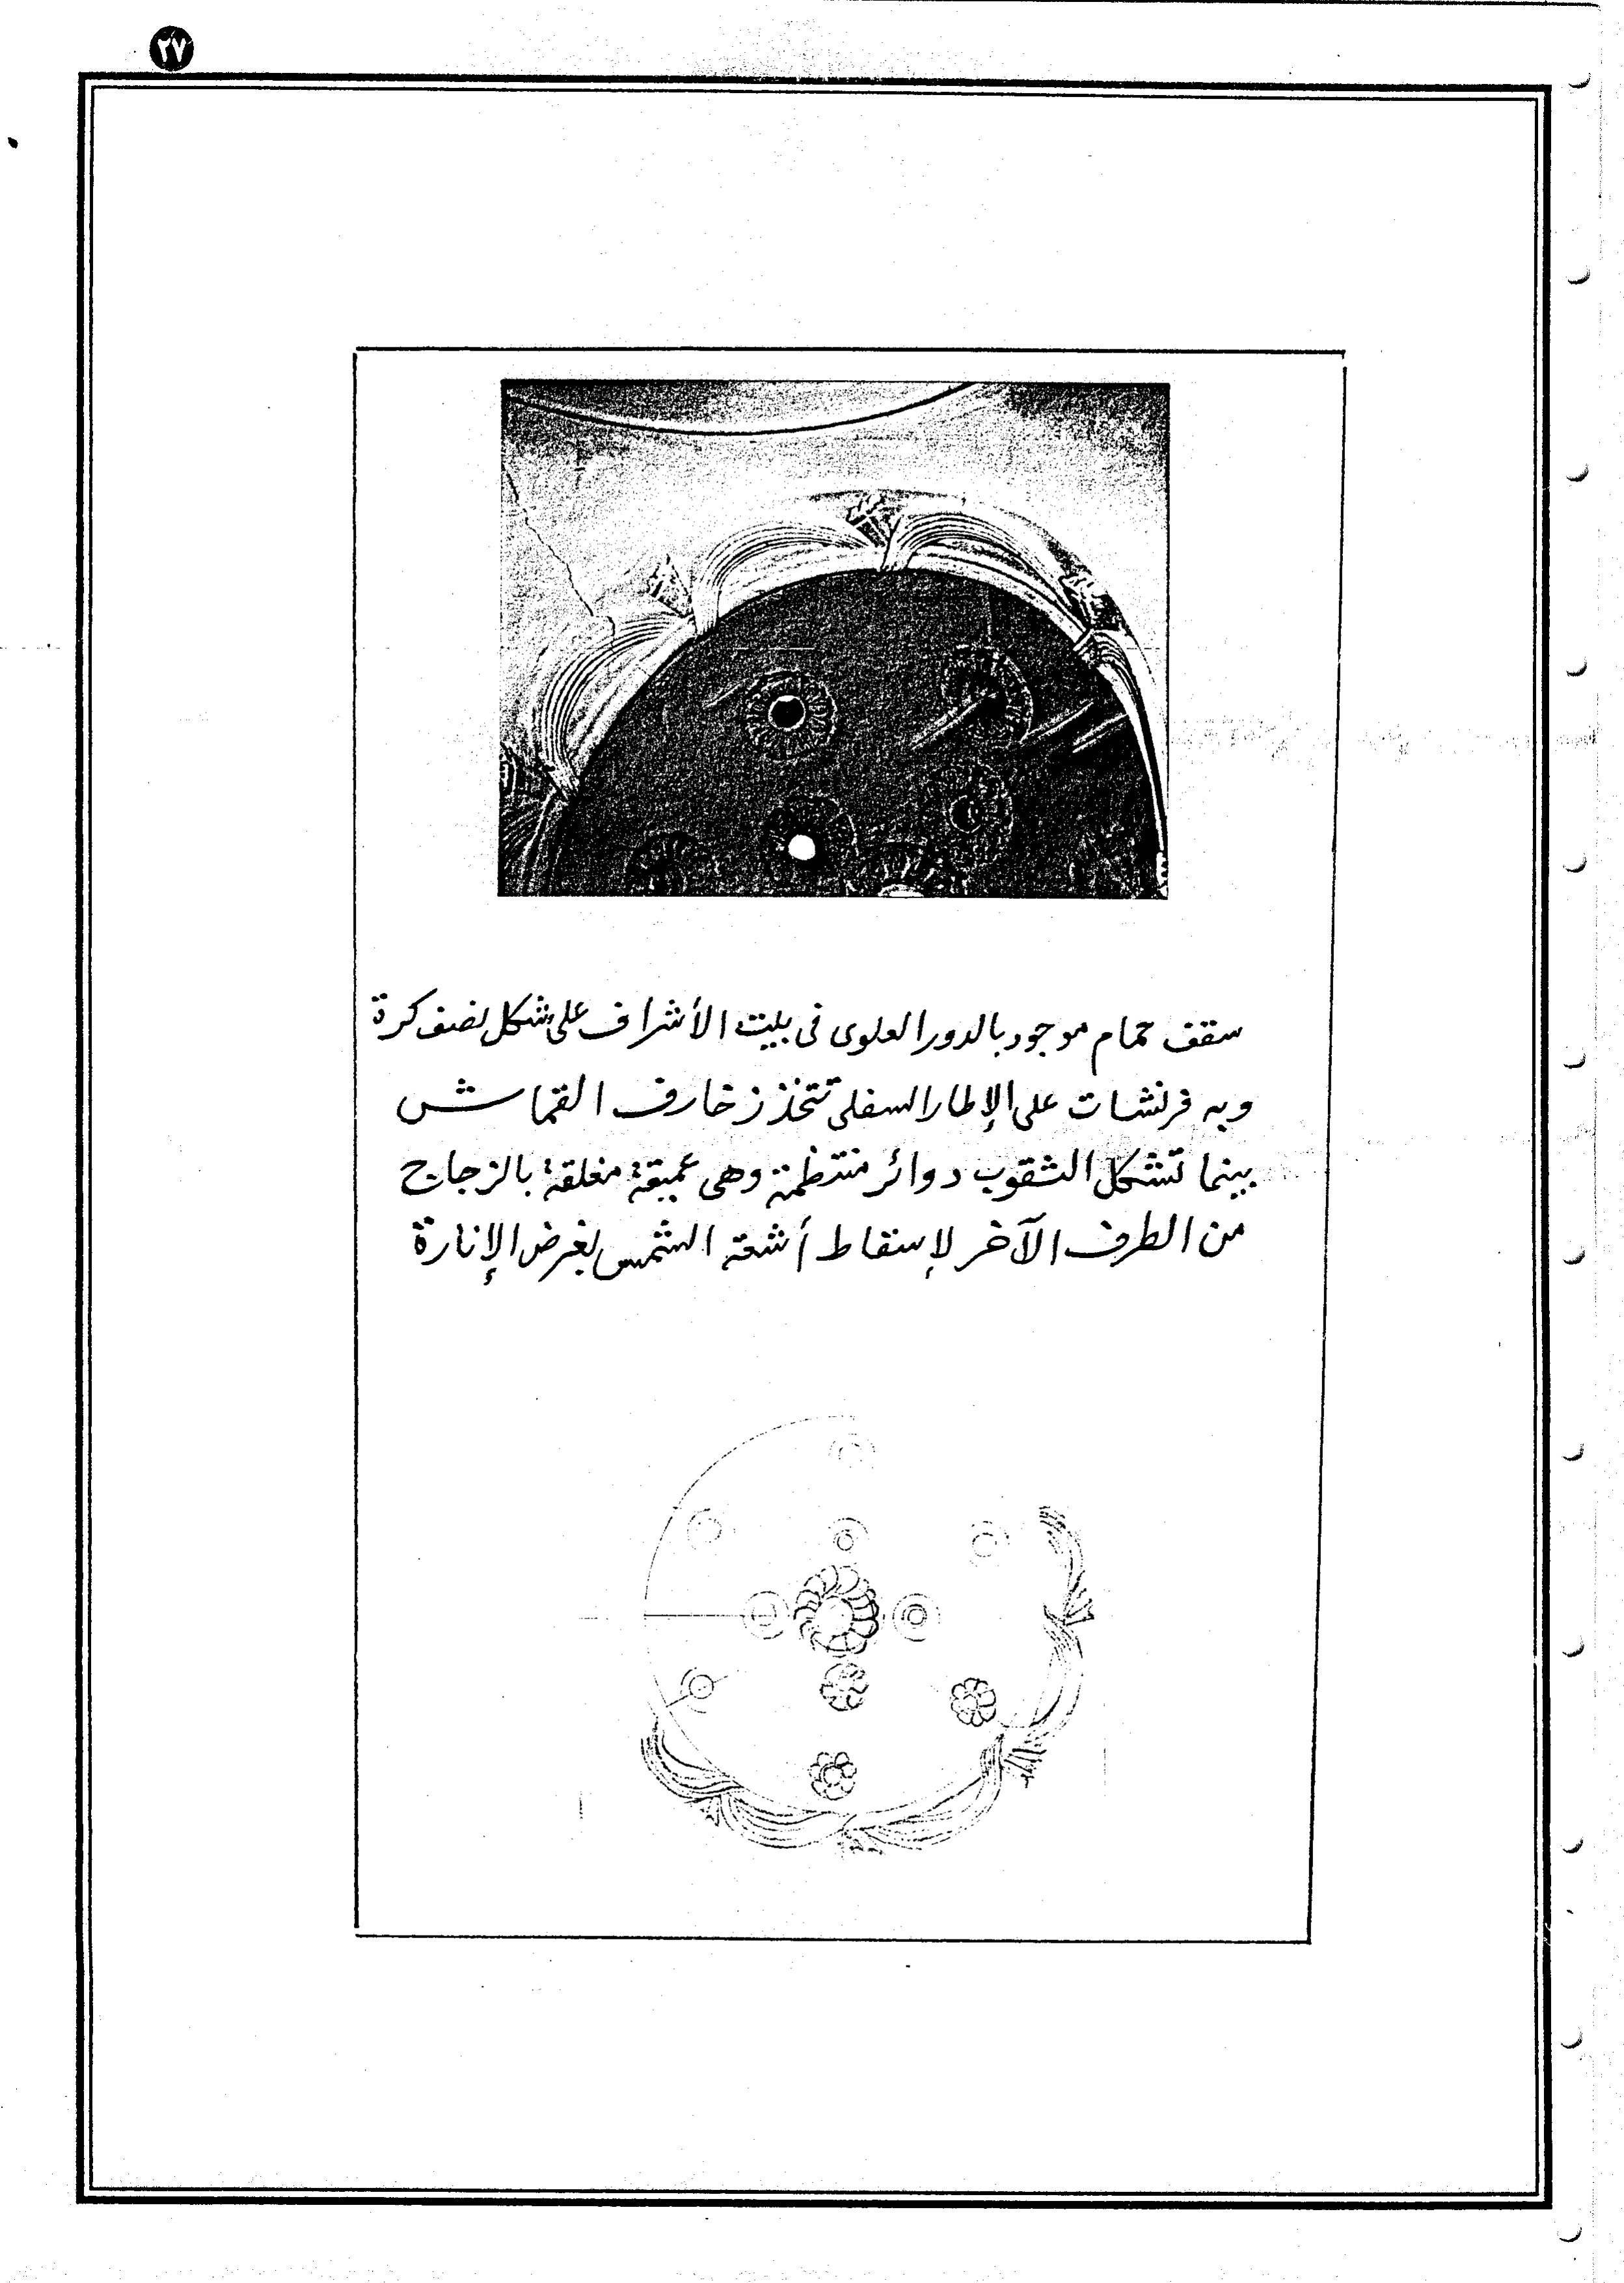 ٢٧
سقف حمام موجود بالدور العلوى فى بيت الأشراف على شكل نصف كرة
وبه فرنشات على الإطار السفلى تتخذ زخارف القماش
بينما تشكل الثقوب دوائر منتظمة وهى عميقة مغلقة بالزجاج
من الطرف الآخر لإسقاط أشعة الشمس لغرض الإنارة